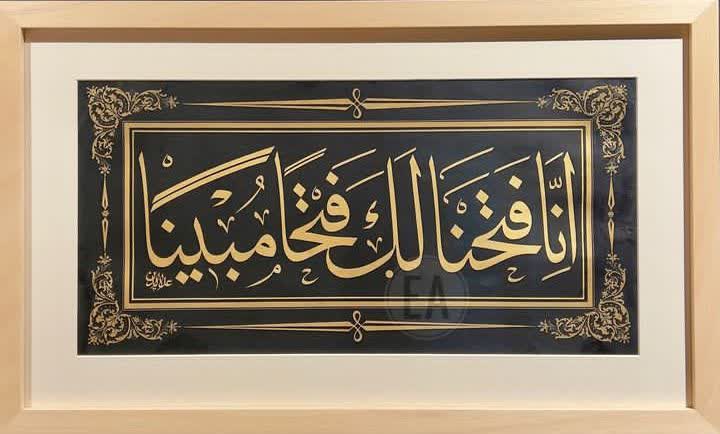 اِنَّا فَتَحْنَا لَكَ فَتْحًا مُبٖينًا
EA